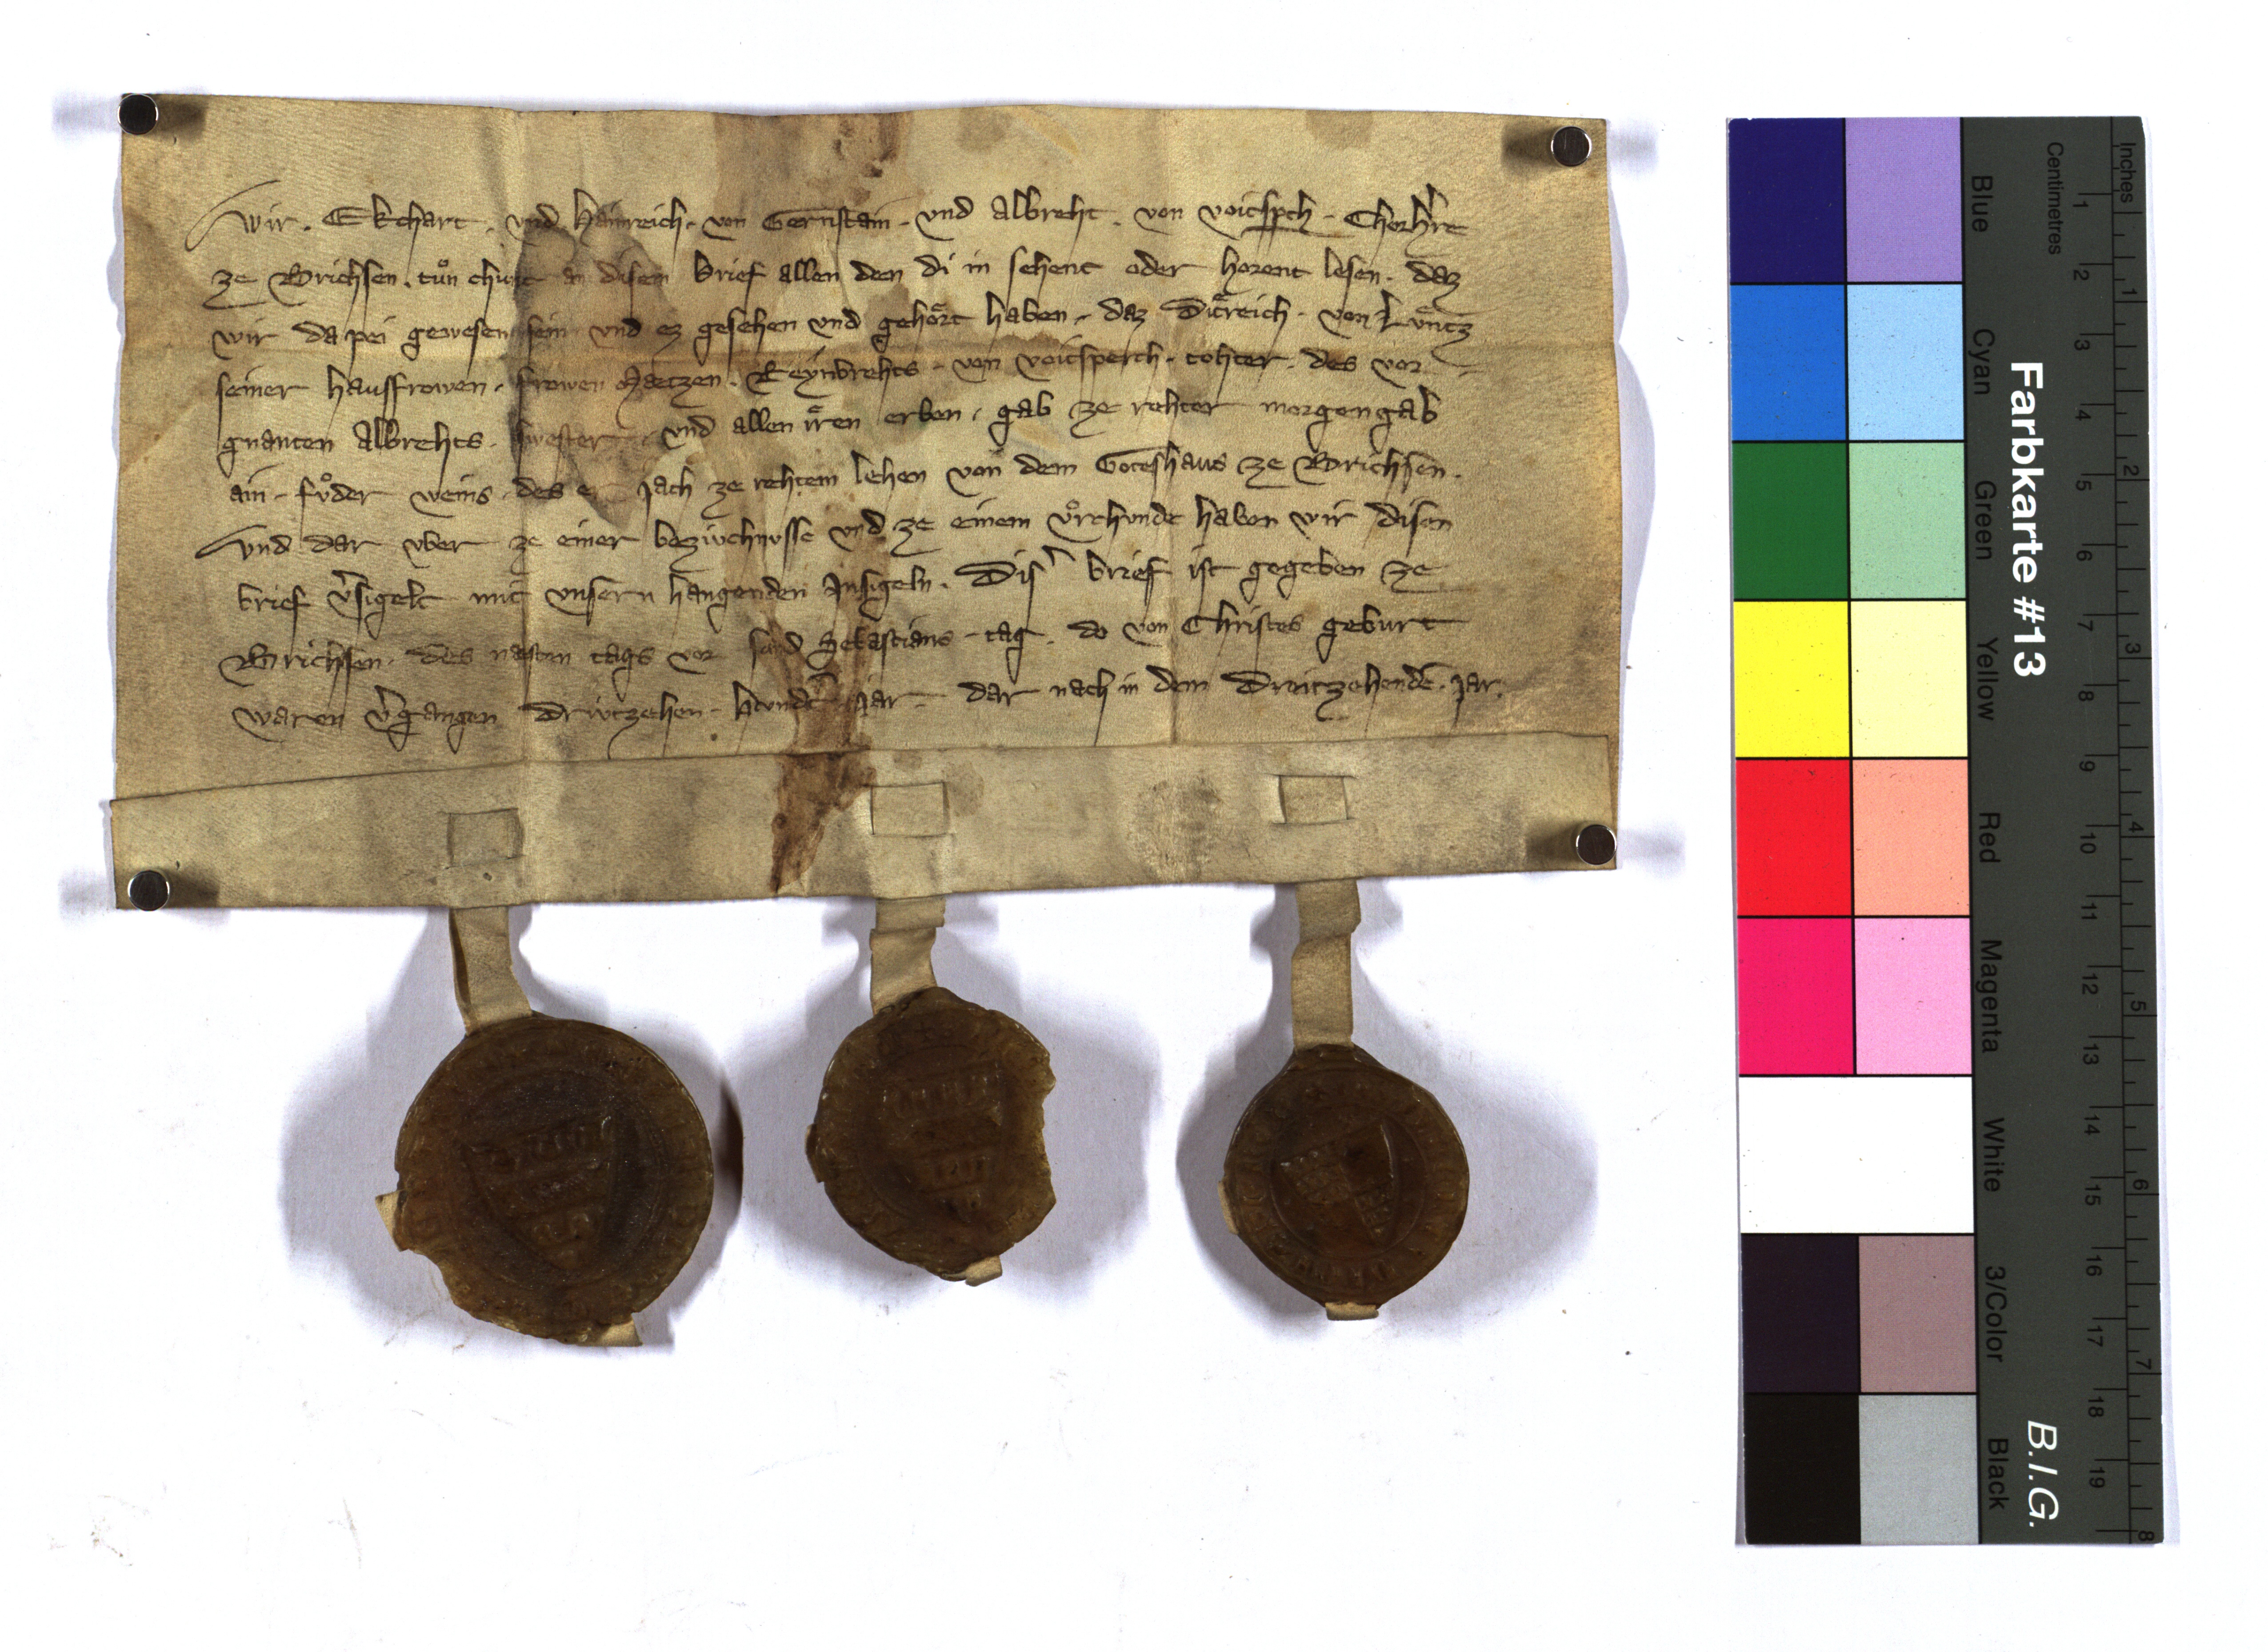 Wir . Ekchart . vnd . Hainreich . von Gernstain . vnd Albreht . von voitsp̲ch . Chorh̾re
ze Brichsen . tuͦn chunt an disem brief allen den di in sehent oder horent lesen . daz
wir da pei gewesen sein vnd ez gesehen vnd gehoͤrt haben . daz Diͤtreich . von Luͤntz
seiner hausfrowen . frowen Matzen . Reynbrehts . von voitsperch . tohter . des vor
gnanten Albrehts . swester . vnd allen iͤren erben . gab ze rehter morgengab
ain . fuͦder weins . des er jach ze rehtem lehen von dem Goteshaus ze Brichsen .
Vnd dar vber ze einer bezivchnvsse vnd ze einem vͦrchvnde haben wir disen
brief v̾sigelt mit vnsern hangenden Insigeln . Dis̾ brief ist gegeben ze
Brichsen . des nasten tags vor sand Sebastians . tag . do von Christes geburt
waren v̾gangen Drivtzehen . Hvndt̾ . jar . dar nach in dem Dreitzehendē . jar .
Farbkarte #13
B.I.G.
Blue
Cyan
Green
Yellow
Red
Magenta
White
3/Color
Black
Centimetres
1 2 3 4 5 6 7 8 9 10 11 12 13 14 15 16 17 18 19
Inches
1 2 3 4 5 6 7 8